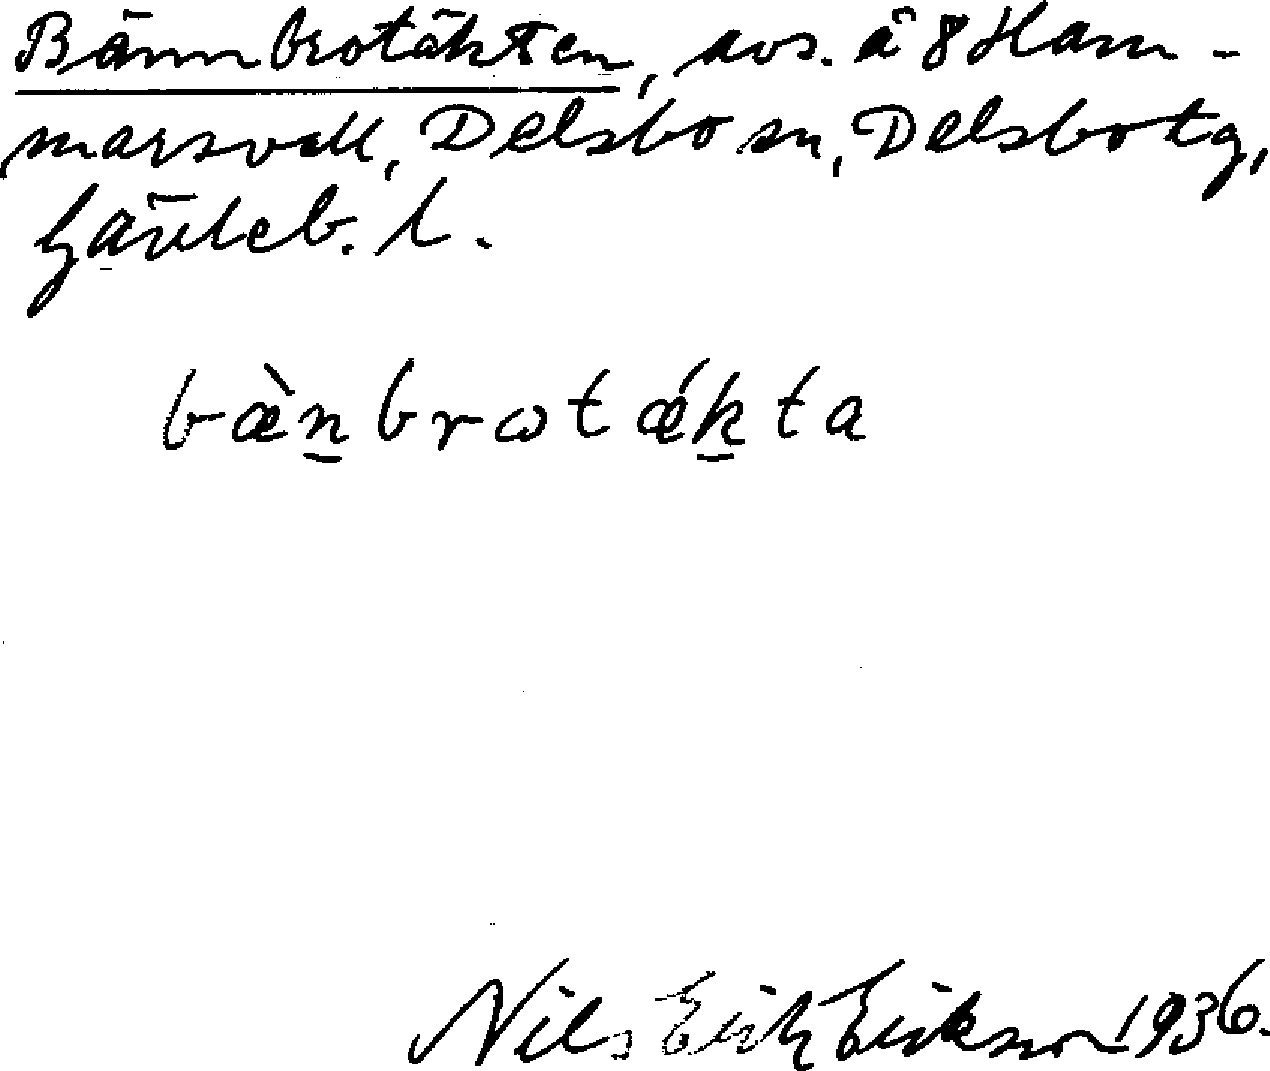 Bännbrotäkten, avs. å 8 Ham-
marsvall, Delsbo sn, Delsbo tg,
Gävleb. l.
bæ̀n̲brωtǽk̲ta
Nils Erik Erikson 1936.